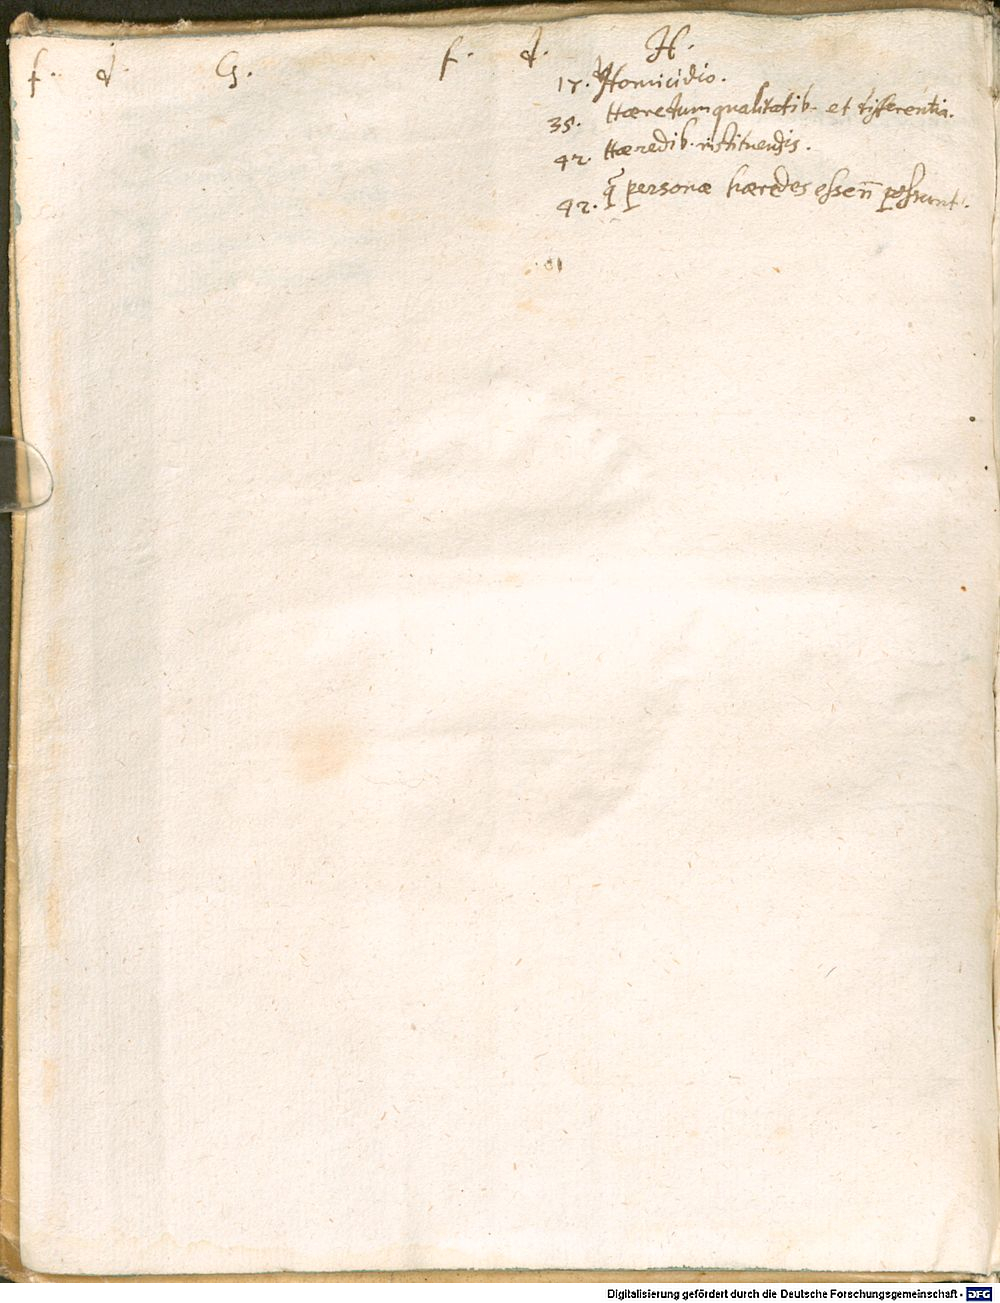 f. d. G. f. d. H.
17. Homicidio.
35. Hæredum qualitatib. et differentia.
42. Hæredib. instituendis.
42. q personæ hæredes esse possunt.
Digitalisierung gefördert durch die Deutsche Forschungsgemeinschaft - DFG